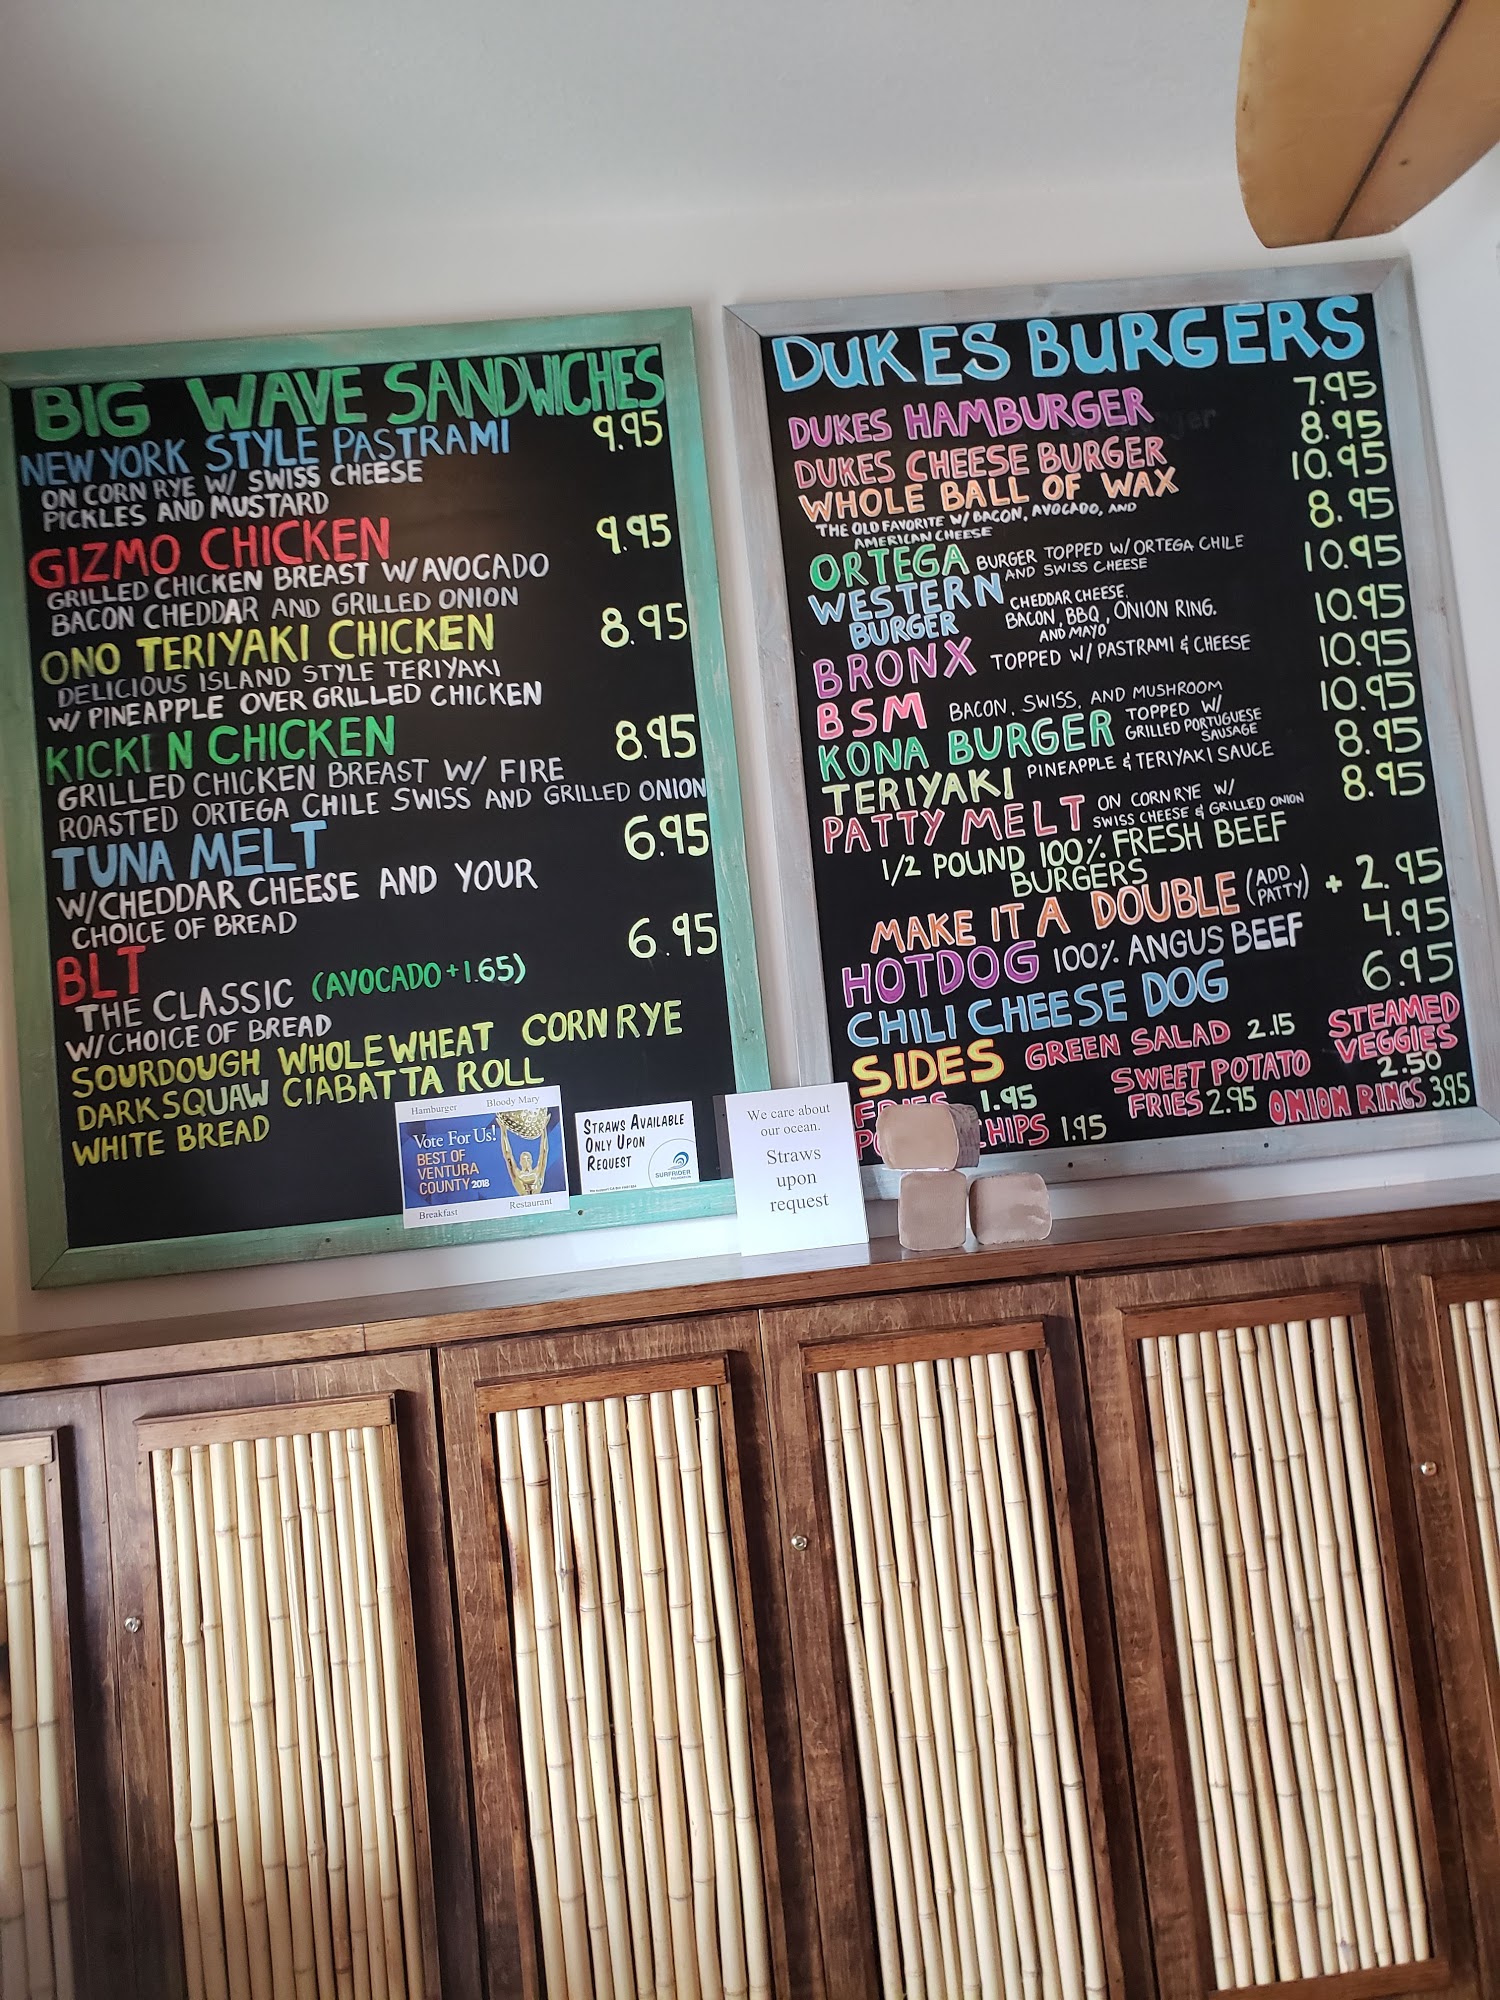 BIG WAVE SANDWICHES
NEW YORK STYLE PASTRAMI 9.95
ON CORN RYE W/ SWISS CHEESE
PICKLES AND MUSTARD
GIZMO CHICKEN 9.95
GRILLED CHICKEN BREAST W/AVOCADO
BACON CHEDDAR AND GRILLED ONION
ONO TERIYAKI CHICKEN 8.95
DELICIOUS ISLAND STYLE TERIYAKI
W/ PINEAPPLE OVER GRILLED CHICKEN
KICKIN CHICKEN 8.95
GRILLED CHICKEN BREAST W/ FIRE
ROASTED ORTEGA CHILE SWISS AND GRILLED ONION
TUNA MELT 6.95
W/CHEDDAR CHEESE AND YOUR
CHOICE OF BREAD
BLT 6.95
THE CLASSIC (AVOCADO +1.65)
W/CHOICE OF BREAD
SOURDOUGH WHOLE WHEAT CORN RYE
DARK SQUAW CIABATTA ROLL
WHITE BREAD
Hamburger Bloody Mary
Vote For Us!
BEST OF
VENTURA
COUNTY 2018
Breakfast Restaurant
STRAWS AVAILABLE
ONLY UPON
REQUEST
SURFRIDER
FOUNDATION
We care about
our ocean.
Straws
upon
request
DUKES BURGERS
DUKES HAMBURGER 7.95
DUKES CHEESE BURGER 8.95
WHOLE BALL OF WAX 10.95
THE OLD FAVORITE W/ BACON, AVOCADO, AND
AMERICAN CHEESE
ORTEGA BURGER TOPPED W/ ORTEGA CHILE 8.95
AND SWISS CHEESE
WESTERN CHEDDAR CHEESE, 10.95
BURGER BACON, BBQ, ONION RING,
AND MAYO
BRONX TOPPED W/ PASTRAMI & CHEESE 10.95
BSM BACON, SWISS, AND MUSHROOM 10.95
KONA BURGER TOPPED W/ 10.95
GRILLED PORTUGUESE
SAUSAGE
TERIYAKI PINEAPPLE & TERIYAKI SAUCE 8.95
PATTY MELT ON CORN RYE W/ 8.95
SWISS CHEESE & GRILLED ONION
1/2 POUND 100% FRESH BEEF
BURGERS
MAKE IT A DOUBLE (ADD PATTY) + 2.95
HOTDOG 100% ANGUS BEEF 4.95
CHILI CHEESE DOG 6.95
SIDES GREEN SALAD 2.15 STEAMED
VEGGIES
2.50
FRIES 1.95 SWEET POTATO
FRIES 2.95 ONION RINGS 3.95
CHIPS 1.95